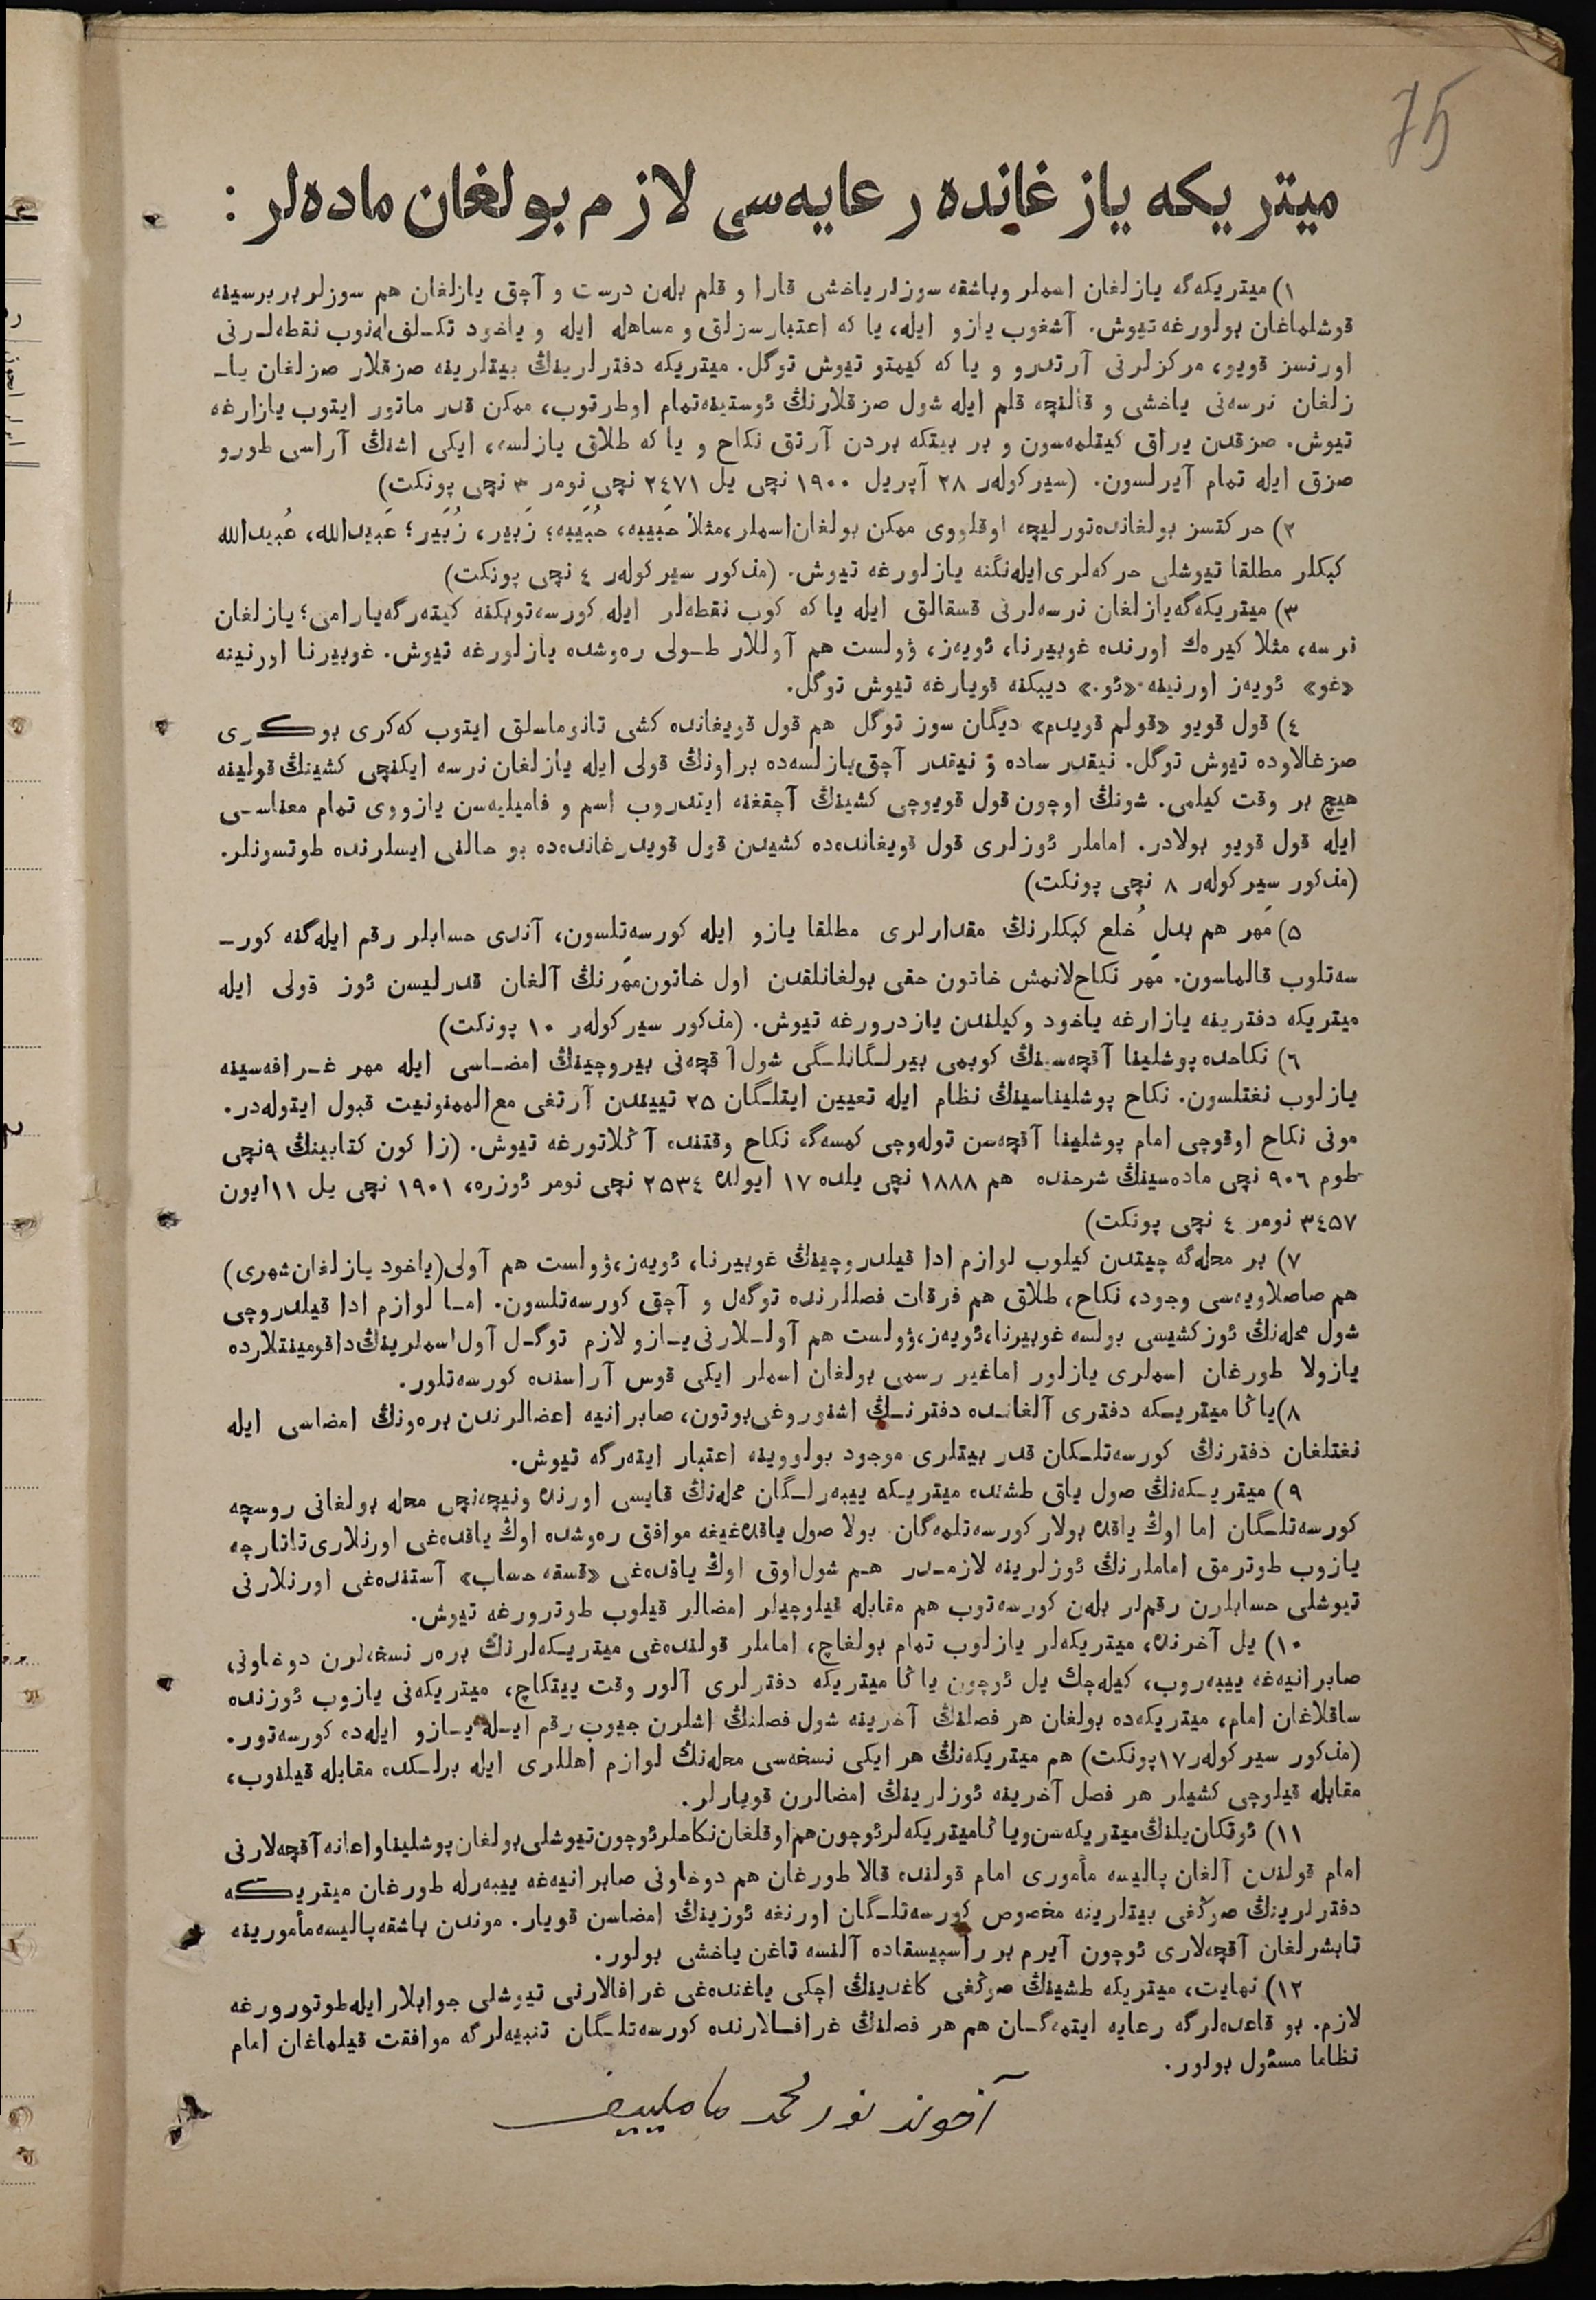 75
میتریکه یازغانده رعایه‌سی لازم بولغان ماده‌لر :
۱) میتریکه‌گه یازلغان اسملر وباشقه سوزلر یاخشی قارا و قلم بله‌ن درست و آچق یازلغان هم سوزلر بر برسینه
قوشلماغان بولورغه تیوش. آشغوب یازو ایله، یا که اعتبارسزلق و مساهله ایله و یاخود تکـلفله‌نوب نقطه‌لـرنی
اورنسز قویو، مرکزلرنی آرتدرو و یا که کیمتو تیوش توگل. میتریکه دفترلرینڭ بیتلرینه صزقلار صزلغان یا-
زلغان نرسه‌نی یاخشی و قالنچه قلم ایله شول صزقلارنڭ ئوستینه تمام اوطرتوب، ممکن قدر ماتور ایتوب یازارغه
تیوش. صزقدن یراق کیتلمه‌سون و بر بیتکه بردن آرتق نکاح و یا که طلاق یازلسه، ایکی اشنڭ آراسی طورو
صزق ایله تمام آیرلسون. (سیرکوله‌ر ۲۸ آپریل ۱۹۰۰ نچی یل ۲٤۷۱ نچی نومر ۳ نچی پونکت)
۲) حرکتسز بولغانده تورلیچه اوقلووی ممکن بولغان اسملر، مثلا حَبیبه، حُبَیبه؛ زَبیر، زُبَیر؛ عَبیدالله، عُبیدالله
کبکلر مطلقا تیوشلی حرکه‌لری ایله‌نگنه یازلورغه تیوش. (مذکور سیرکوله‌ر ٤ نچی پونکت)
۳) میتریکه‌گه یازلغان نرسه‌لرنی قسقالق ایله یا که کوب نقطه‌لر ایله کورسه‌توبکنه کیته‌رگه یارامی؛ یازلغان
نرسه، مثلا کیره‌ك اورنده غوبیرنا، ئویه‌ز، ۋولست هم آوللار طـولی ره‌وشده یازلورغه تیوش. غوبیرنا اورنینه
«غو» ئویه‌ز اورنینه «ئو.» دیبکنه قویارغه تیوش توگل.
٤) قول قویو «قولم قویدم» دیگان سوز توگل هم قول قویغانده کشی تانوماسلق ایتوب که‌کری بوکـری
صزغالاوده تیوش توگل. نیقدر ساده و نیقدر آچق یازلسه‌ده براونڭ قولی ایله یازلغان نرسه ایکنچی کشینڭ قولینه
هیچ بر وقت کیلمی. شونڭ اوچون قول قویوچی کشینڭ آچقغنه ایتدروب اسم و فامیلیه‌سن یازووی تمام معناسـی
ایله قول قویو بولادر. اماملر ئوزلری قول قویغانده‌ده کشیدن قول قویدرغانده‌ده بو حالنی ایسلرنده طوتسونلر.
(مذکور سیرکوله‌ر ۸ نچی پونکت)
۵) مَهر هم بدل خُلع کبکلرنڭ مقدارلری مطلقا یازو ایله کورسه‌تلسون، آندی حسابلر رقم ایله‌گنه کور-
سه‌تلوب قالماسون. مَهر نکاح‌لانمش خاتون حقی بولغانلقدن اول خاتون مَهرنڭ آلغان قدرلیسن ئوز قولی ایله
میتریکه دفترینه یازارغه یاخود وکیلندن یازدرورغه تیوش. (مذکور سیرکوله‌ر ۱۰ پونکت)
٦) نکاحده پوشلینا آقچه‌سینڭ کوبمی بیرلـگانلـگی شول آقچه‌نی بیروچینڭ امضـاسی ایله مهر غـرافه‌سینه
یازلوب نغتلسون. نکاح پوشلیناسینڭ نظام ایله تعیین ایتلـگان ۲۵ تییندن آرتغی مع‌الممنونیت قبول ایتوله‌در.
مونی نکاح اوقوچی امام پوشلینا آقچه‌سن توله‌وچی کمسه‌گه نکاح وقتنده آڭلاتورغه تیوش. (زاکون کتابینڭ ۹نچی
طوم ۹۰٦ نچی ماده‌سینڭ شرحنده هم ۱۸۸۸ نچی یلده ۱۷ ایولده ۲۵۳٤ نچی نومر ئوزره، ۱۹۰۱ نچی یل ۱۱ ایون
۳٤۵۷ نومر ٤ نچی پونکت)
۷) بر محله‌گه چیتدن کیلوب لوازم ادا قیلدروچینڭ غوبیرنا، ئویه‌ز، ۋولست هم آولی (یاخود یازلغان شهری)
هم صاصلاویه‌سی وجود، نکاح، طلاق هم فرقات فصللرنده توگه‌ل و آچق کورسه‌تلسون. امـا لوازم ادا قیلدروچی
شول محله‌نڭ ئوز کشیسی بولسه غوبیرنا، ئویه‌ز، ۋولست هم آولـلارنی یـازو لازم توگـل آول اسملرینڭ داقومینتلارده
یازولا طورغان اسملری یازلور اما غیر رسمی بولغان اسملر ایکی قوس آراسنده کورسه‌تلور.
۸) یاڭا میتریـکه دفتری آلغانـده دفترنـڭ اشنوروغی بوتون، صابرانیه اعضالرندن بره‌ونڭ امضاسی ایله
نغتلغان دفترنڭ کورسه‌تلـکان قدر بیتلری موجود بولووینه اعتبار ایته‌رگه تیوش.
۹) میتریـکه‌نڭ صول یاق طشنده میتریـکه ییبه‌رلـگان محله‌نڭ قایسی اورنده ونیچه‌نچی محله بولغانی روسچه
کورسه‌تلـگان اما اوڭ یاقده بولار کورسه‌تلمه‌گان. بولا صول یاقده‌غیغه موافق ره‌وشده اوڭ یاقده‌غی اورنلاری تاتارچه
یازوب طوترمق اماملرنڭ ئوزلرینه لازمـدر هـم شول‌اوق اوڭ یاقده‌غی «قسقه حساب» آستنده‌غی اورنلارنی
تیوشلی حسابلرن رقم‌لر بله‌ن کورسه‌توب هم مقابله قیلوچیلر امضالر قیلوب طوترورغه تیوش.
۱۰) یل آخرنده، میتریکه‌لر یازلوب تمام بولغاچ، اماملر قولنده‌غی میتریـکه‌لرنڭ بره‌ر نسخه‌لرن دوخاونی
صابرانیه‌غه ییبه‌روب، کیله‌چك یل ئوچون یاڭا میتریکه دفترلری آلور وقت ییتکاچ، میتریکه‌نی یازوب ئوزنده
ساقلاغان امام، میتریکه‌ده بولغان هر فصلنڭ آخرینه شول فصلنڭ اشلرن جیوب رقم ایـله یـازو ایله‌ده کورسه‌تور.
(مذکور سیرکوله‌ر ۱۷ پونکت) هم میتریکه‌نڭ هر ایکی نسخه‌سی محله‌نڭ لوازم اهللری ایله برلـکده مقابله قیلنوب،
مقابله قیلوچی کشیلر هر فصل آخرینه ئوزلرینڭ امضالرن قویارلر.
۱۱) ئوتکان یلنڭ میتریکه‌سن ویاڭا میتریکه‌لر ئوچون هم اوقلغان نکاحلر ئوچون تیوشلی بولغان پوشلینا و اعانه آقچه‌لارنی
امام قولندن آلغان پالیسه مأموری امام قولنده قالا طورغان هم دوخاونی صابرانیه‌غه ییبه‌رله طورغان میتریـکه
دفترلرینڭ صوڭغی بیتلرینه مخصوص کورسه‌تلـگان اورنغه ئوزینڭ امضاسن قویار. موندن باشقه پالیسه مأمورینه
تابشرلغان آقچه‌لاری ئوچون آیرم بر راسپیسقاده آلنسه تاغن یاخشی بولور.
۱۲) نهایت، میتریکه طشینڭ صوڭغی کاغدینڭ اچکی یاغنده‌غی غرافالارنی تیوشلی جوابلار ایله طوتورورغه
لازم. بو قاعده‌لرگه رعایه ایتمه‌گـان هم هر فصلنڭ غرافـالارنده کورسه‌تلـگان تنبیه‌لرگه موافقت قیلماغان امام
نظاما مسئول بولور.
آخوند نورمحمد ماملییف